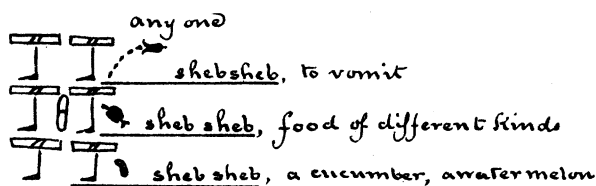 any one
shebsheb, to vomit
sheb sheb, food of different kinds
sheb sheb, a cucumber, a water melon